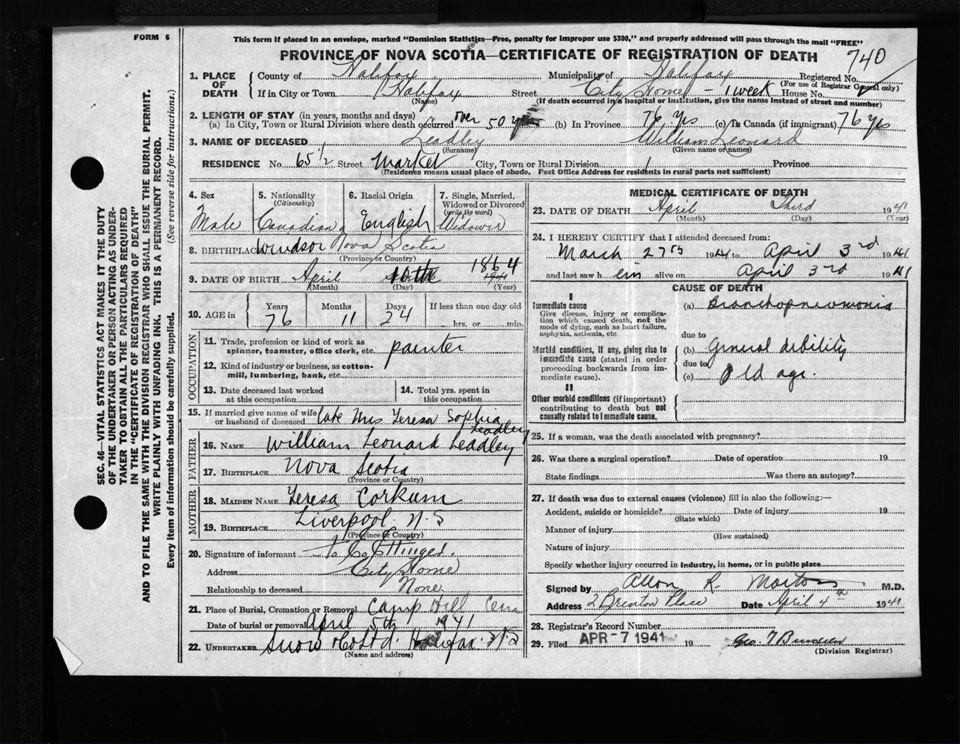 This form if placed in an envelope, marked "Dominion Statistics—Free, penalty for improper use $300," and properly addressed will pass through the mail "FREE"
FORM 6
PROVINCE OF NOVA SCOTIA—CERTIFICATE OF REGISTRATION OF DEATH
740
1. PLACE OF DEATH
County of Halifax Municipality of Halifax Registered No.
(For use of Registrar General only)
If in City or Town Halifax Street City Home - 1 week House No.
(Name) (If death occurred in a hospital or institution, give the name instead of street and number)
2. LENGTH OF STAY (in years, months and days)
(a) In City, Town or Rural Division where death occurred over 50 yrs (b) In Province 76 yrs (c) To Canada (if immigrant) 76 yrs
3. NAME OF DECEASED Leadley William Leonard
(Surname) (Given name or names)
RESIDENCE No. 65½ Street Market City, Town or Rural Division Province
(Residence means usual place of abode. Post Office Address for residents in rural parts not sufficient)
4. Sex Male
5. Nationality (Citizenship) Canadian
6. Racial Origin English
7. Single, Married, Widowed or Divorced (write the word) Widower
8. BIRTHPLACE Windsor Nova Scotia
(Province or Country)
9. DATE OF BIRTH April 10th 1864
(Month) (Day) (Year)
10. AGE in Years 76 Months 11 Days 24 If less than one day old
hrs. or min.
OCCUPATION
11. Trade, profession or kind of work as spinner, teamster, office clerk, etc. painter
12. Kind of industry or business, as cotton-mill, lumbering, bank, etc.
13. Date deceased last worked at this occupation
14. Total yrs. spent in this occupation
15. If married give name of wife or husband of deceased late Mrs Teresa Sophia Leadley
FATHER
16. NAME William Leonard Leadley
17. BIRTHPLACE Nova Scotia
(Province or Country)
MOTHER
18. MAIDEN NAME Teresa Corkum
19. BIRTHPLACE Liverpool N.S
(Province or Country)
20. Signature of informant
Address City Home
Relationship to deceased None
21. Place of Burial, Cremation or Removal Camp Hill Cem
Date of burial or removal April 5th 1941
22. UNDERTAKER Snow & Co Ltd. Halifax N S
(Name and address)
MEDICAL CERTIFICATE OF DEATH
23. DATE OF DEATH April Third 1941
(Month) (Day)
24. I HEREBY CERTIFY that I attended deceased from:
March 27th 1941 to April 3rd 1941
and last saw him alive on April 3rd 1941
CAUSE OF DEATH
I
Immediate cause (a) Bronchopneumonia
Give disease, injury or complication which caused death, not the mode of dying, such as heart failure, asphyxia, asthenia, etc
due to
Morbid conditions, if any, giving rise to immediate cause (stated in order proceeding backwards from immediate cause).
(b) General debility
due to
(c) Old age.
II
Other morbid conditions (if important) contributing to death but not causally related to immediate cause.
25. If a woman, was the death associated with pregnancy?
26. Was there a surgical operation? Date of operation 19
State findings Was there an autopsy?
27. If death was due to external causes (violence) fill in also the following:—
Accident, suicide or homicide? Date of injury 19
(State which)
Manner of injury
(How sustained)
Nature of injury
Specify whether injury occurred in industry, in home, or in public place
Signed by Allan R. Morton M.D.
Address 2 Brenton Place Date April 4th 1941
28. Registrar's Record Number
29. Filed APR - 7 1941 19
(Division Registrar)
SEC. 46—VITAL STATISTICS ACT MAKES IT THE DUTY
OF THE UNDERTAKER OR PERSON ACTING AS UNDER-
TAKER TO OBTAIN ALL THE PARTICULARS REQUIRED
IN THE "CERTIFICATE OF REGISTRATION OF DEATH"
AND TO FILE THE SAME WITH THE DIVISION REGISTRAR WHO SHALL ISSUE THE BURIAL PERMIT.
WRITE PLAINLY WITH UNFADING INK. THIS IS A PERMANENT RECORD.
Every item of information should be carefully supplied. (See reverse side for instructions.)